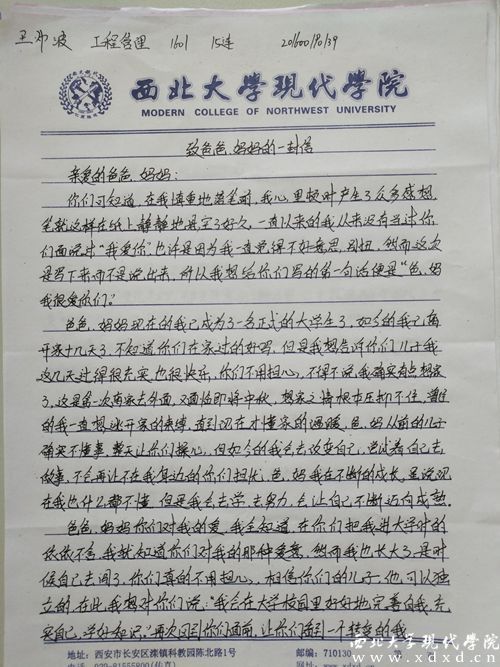 王邦波 工程管理 1601 15连 201600190139
西北大学现代学院
MODERN COLLEGE OF NORTHWEST UNIVERSITY
致爸爸、妈妈的一封信
亲爱的爸爸、妈妈：
你们可知道，在我慎重地落笔前，我心里顿时产生了众多感想，
笔就这样在纸上静静地悬空了好久，一直以来的我从来没有当过你
们面说过“我爱你”也许是因为我一直觉得不好意思，别扭，然而这次
是写下来而不是说出来，所以我想给你们写的第一句话便是“爸、妈
我很爱你们。”
爸爸、妈妈现在的我已成为了一名正式的大学生了，如今的我已离
开家十几天了，不知道你们在家过的好吗，但是我想告诉你们儿子我
这几天过得很充实，也很快乐，你们不用担心，不得不说我确实有点想家
了，这是第一次离家去外面，又面临即将中秋，想家之情根本压抑不住，曾经
的我一直想逃开家的束缚，直到现在才懂家的温暖。爸、妈从前的儿子
确实不懂事，整天让你们操心，但如今的我会去改变自己，尝试着自己去
做事，不会再让不在我身边的你们担忧，爸、妈我在不断的成长，虽说现
在我也什么都不懂，但是我会去学，去努力，会让自己不断迈向成熟。
爸爸、妈妈你们对我的爱，我全知道，在你们把我送大学时的
依依不舍，我就知道你们对我的那种爱意，然而我也长大了，是时
候自己去闯了，你们真的不用担心，相信你们的儿子，他可以独
立的，在此，我想对你们说：“我会在大学校园里好好地完善自我，充
实自己，学好知识。”再次回到你们面前，让你们看到一个转变的我
地址：西安市长安区滦镇科教园陈北路1号 邮编：710130
电话：029-81555800(传真)
西北大学现代学院
www.xdxd.cn